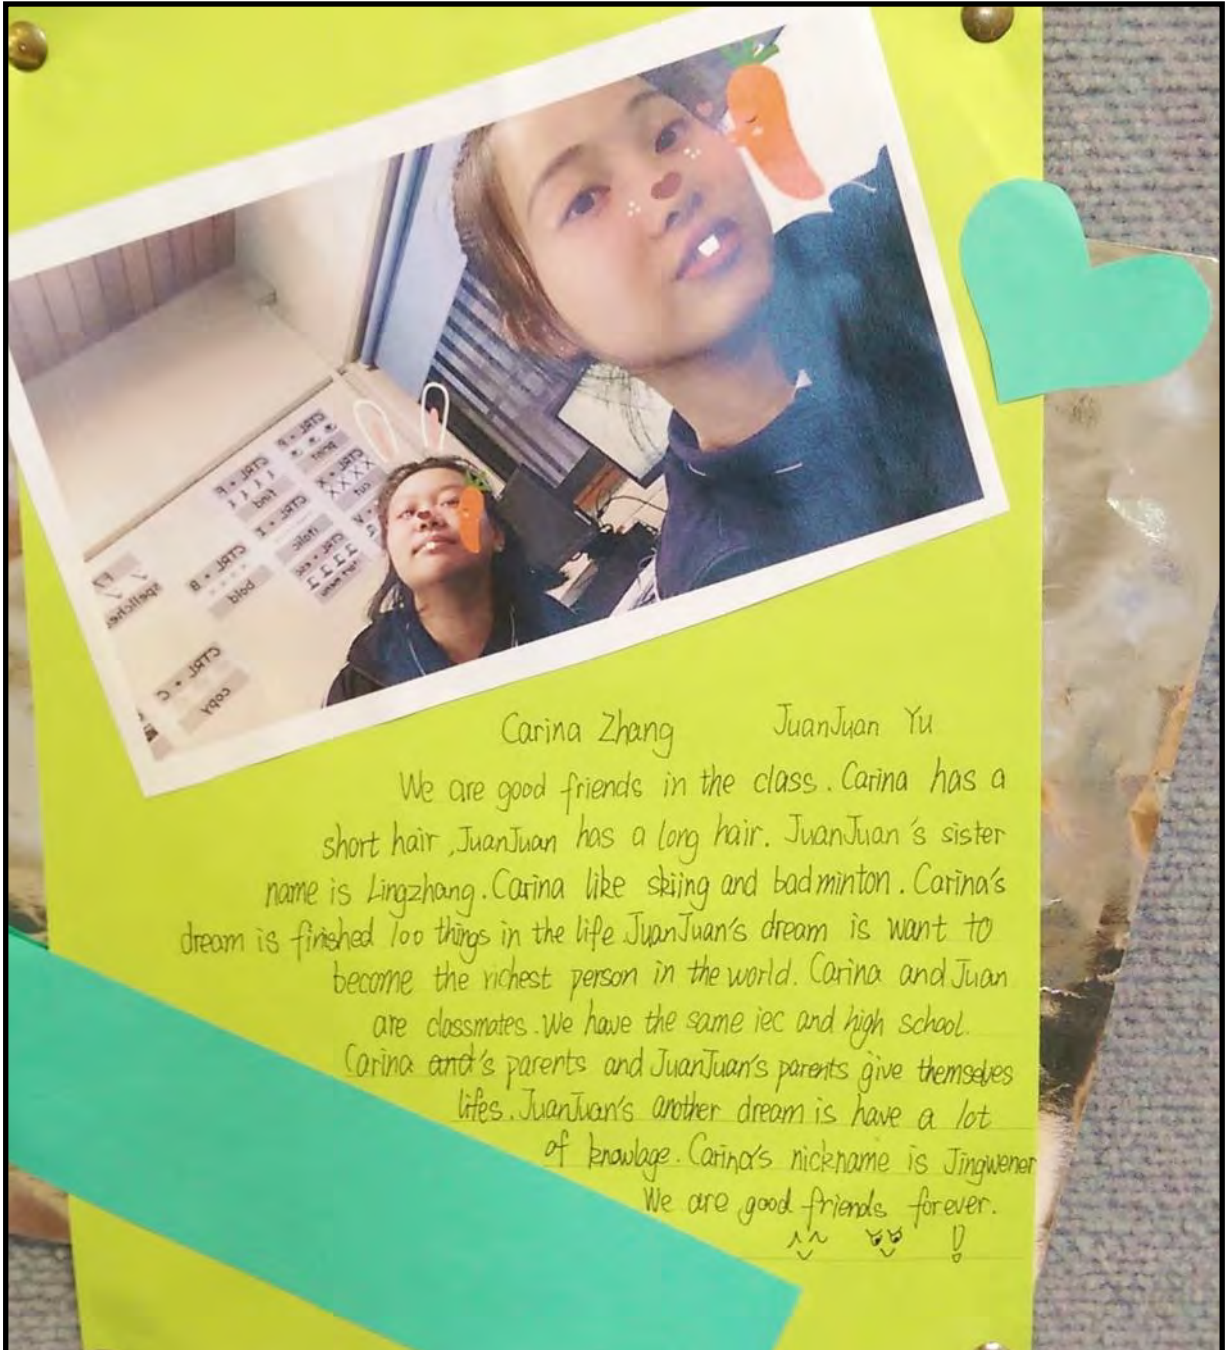 CTRL + P
print
CTRL + F
find
CTRL + X
XXXX
cut
CTRL + Z
italic
CTRL + B
bold
F7
CTRL + C
copy
Carina Zhang JuanJuan Yu
We are good friends in the class. Carina has a
short hair, JuanJuan has a long hair. JuanJuan's sister
name is Lingzhang. Carina like skiing and badminton. Carina's
dream is finished 100 things in the life JuanJuan's dream is want to
become the richest person in the world. Carina and Juan
are classmates. We have the same iec and high school.
Carina and's parents and JuanJuan's parents give themselves
lifes. JuanJuan's another dream is have a lot
of knowlage. Carina's nickname is Jingwener
We are good friends forever.
!